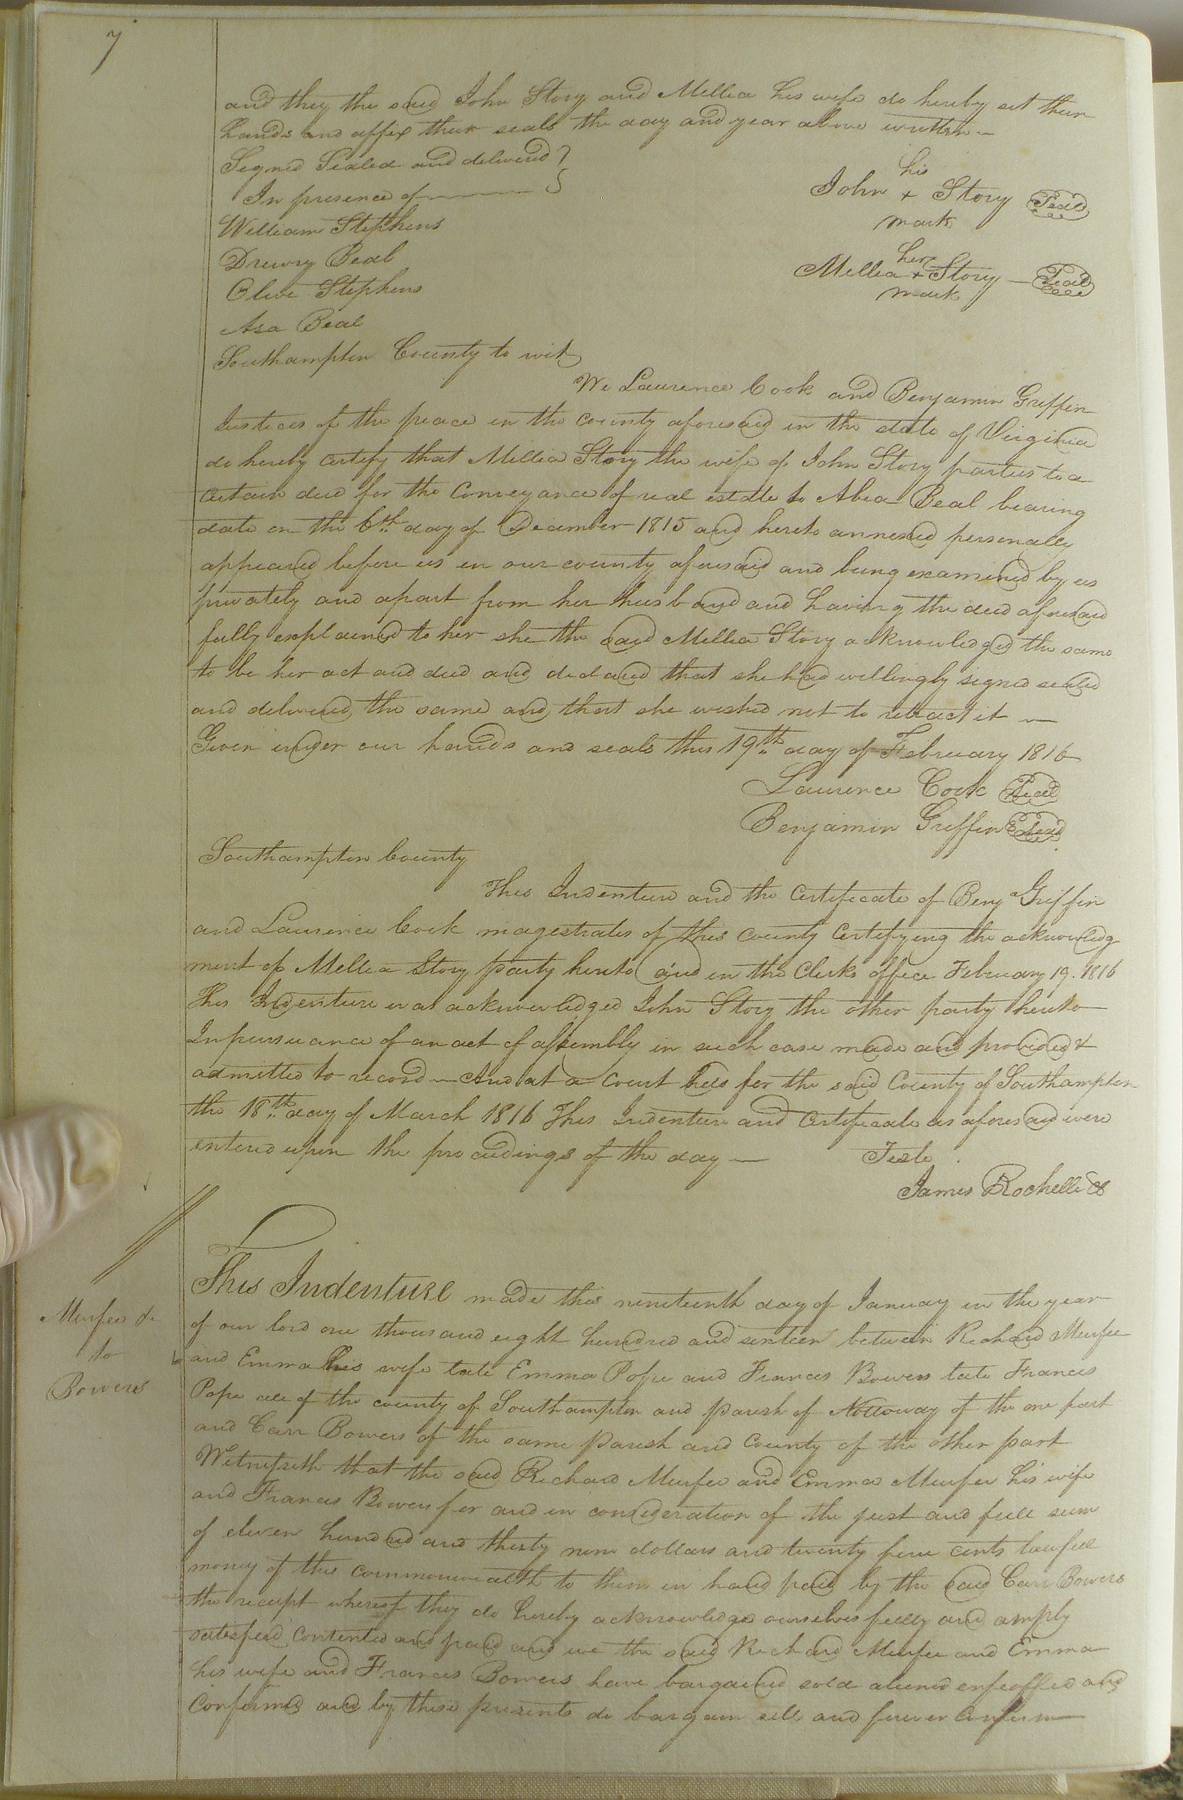 7
and they the said John Story and Millea his wife do hereby set their
hands and affix their seals the day and year above written —
Signed Sealed and delivered }
In presence of
William Stephens
Drewry Beal
Olive Stephens
Asa Beal
his
John + Story Seal
mark
her
Millea + Story — Seal
mark
Southampton County to wit
We Laurence Cook and Benjamin Griffin
Justices of the peace in the county aforesaid in the state of Virginia
do hereby certify that Millea Story the wife of John Story parties to a
certain deed for the Conveyance of real estate to Abea Beal bearing
date on the 6th day of December 1815 and hereto annexed personally
appeared before us in our county aforesaid and being examined by us
privately and apart from her husband and having the deed aforesaid
fully explained to her she the said Millea Story acknowledged the same
to be her act and deed and declared that she had willingly signed sealed
and delivered the same and that she wished not to retract it —
Given under our hands and seals this 19th day of February 1816
Laurence Cook Seal
Benjamin Griffin Seal
Southampton County
This Indenture and the certificate of Benja Griffin
and Laurence Cook magestrates of this county Certifying the acknowledg
ment of Millea Story party hereto and in the Clerks office February 19. 1816
This Indenture was acknowledged John Story the other party hereto
In pursuance of an act of assembly in such case made and provided &
admitted to record — And at a Court held for the said County of Southampton
the 18th day of March 1816 This Indenture and Certificate as aforesaid were
entered upon the proceedings of the day —
Teste
James Rochelle
Murfee &c
to
Bowers
This Indenture made this nineteenth day of January in the year
of our lord one thousand eight hundred and sixteen between Richard Murfee
and Emma his wife late Emma Pope and Frances Bowers late Frances
Pope all of the county of Southampton and parish of Nottoway of the one part
and Carr Bowers of the same parish and County of the other part
Witnesseth that the said Richard Murfee and Emma Murfee his wife
and Frances Bowers for and in consideration of the just and full sum
of eleven hundred and thirty nine dollars and twenty five cents lawful
money of this commonwealth to them in hand paid by the said Carr Bowers
the receipt whereof they do hereby acknowledge ourselves fully and amply
satisfied contented and paid and we the said Richard Murfee and Emma
his wife and Frances Bowers have bargained sold aliened enfeoffed and
Confirmed and by these presents do bargain sell and forever Confirm